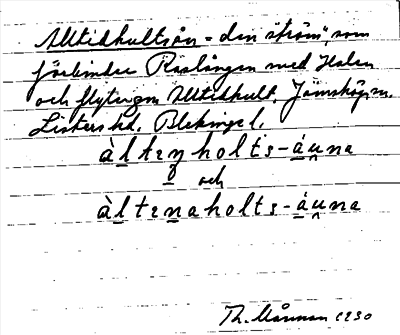 Alltidhultsån = den ström, som
förbinder Raslången med Halen
och flyter gm Alltidhult. Jämshög sn.
Listers hd. Blekinge l.
àltenholts-áuna
och
àltenaholts-áuna
Th. Mårman 1930